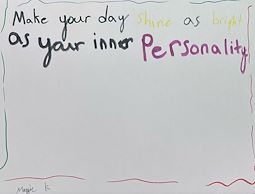 Make your day shine as bright
as your inner Personality